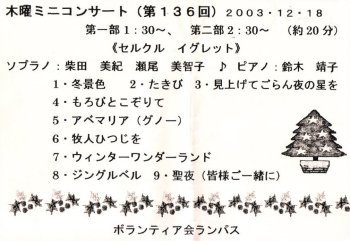 木曜ミニコンサート（第１３６回）２００３・１２・１８
第一部１：３０～、　第二部２：３０～　（約２０分）
《セルクル　イグレット》
ソプラノ：柴田　美紀　瀬尾　美智子　♪　ピアノ：鈴木　靖子
１・冬景色　　２・たきび　３・見上げてごらん夜の星を
４・もろびとこぞりて
５・アベマリア（グノー）
６・牧人ひつじを
７・ウィンターワンダーランド
８・ジングルベル　９・聖夜（皆様ご一緒に）
ボランティア会ランパス